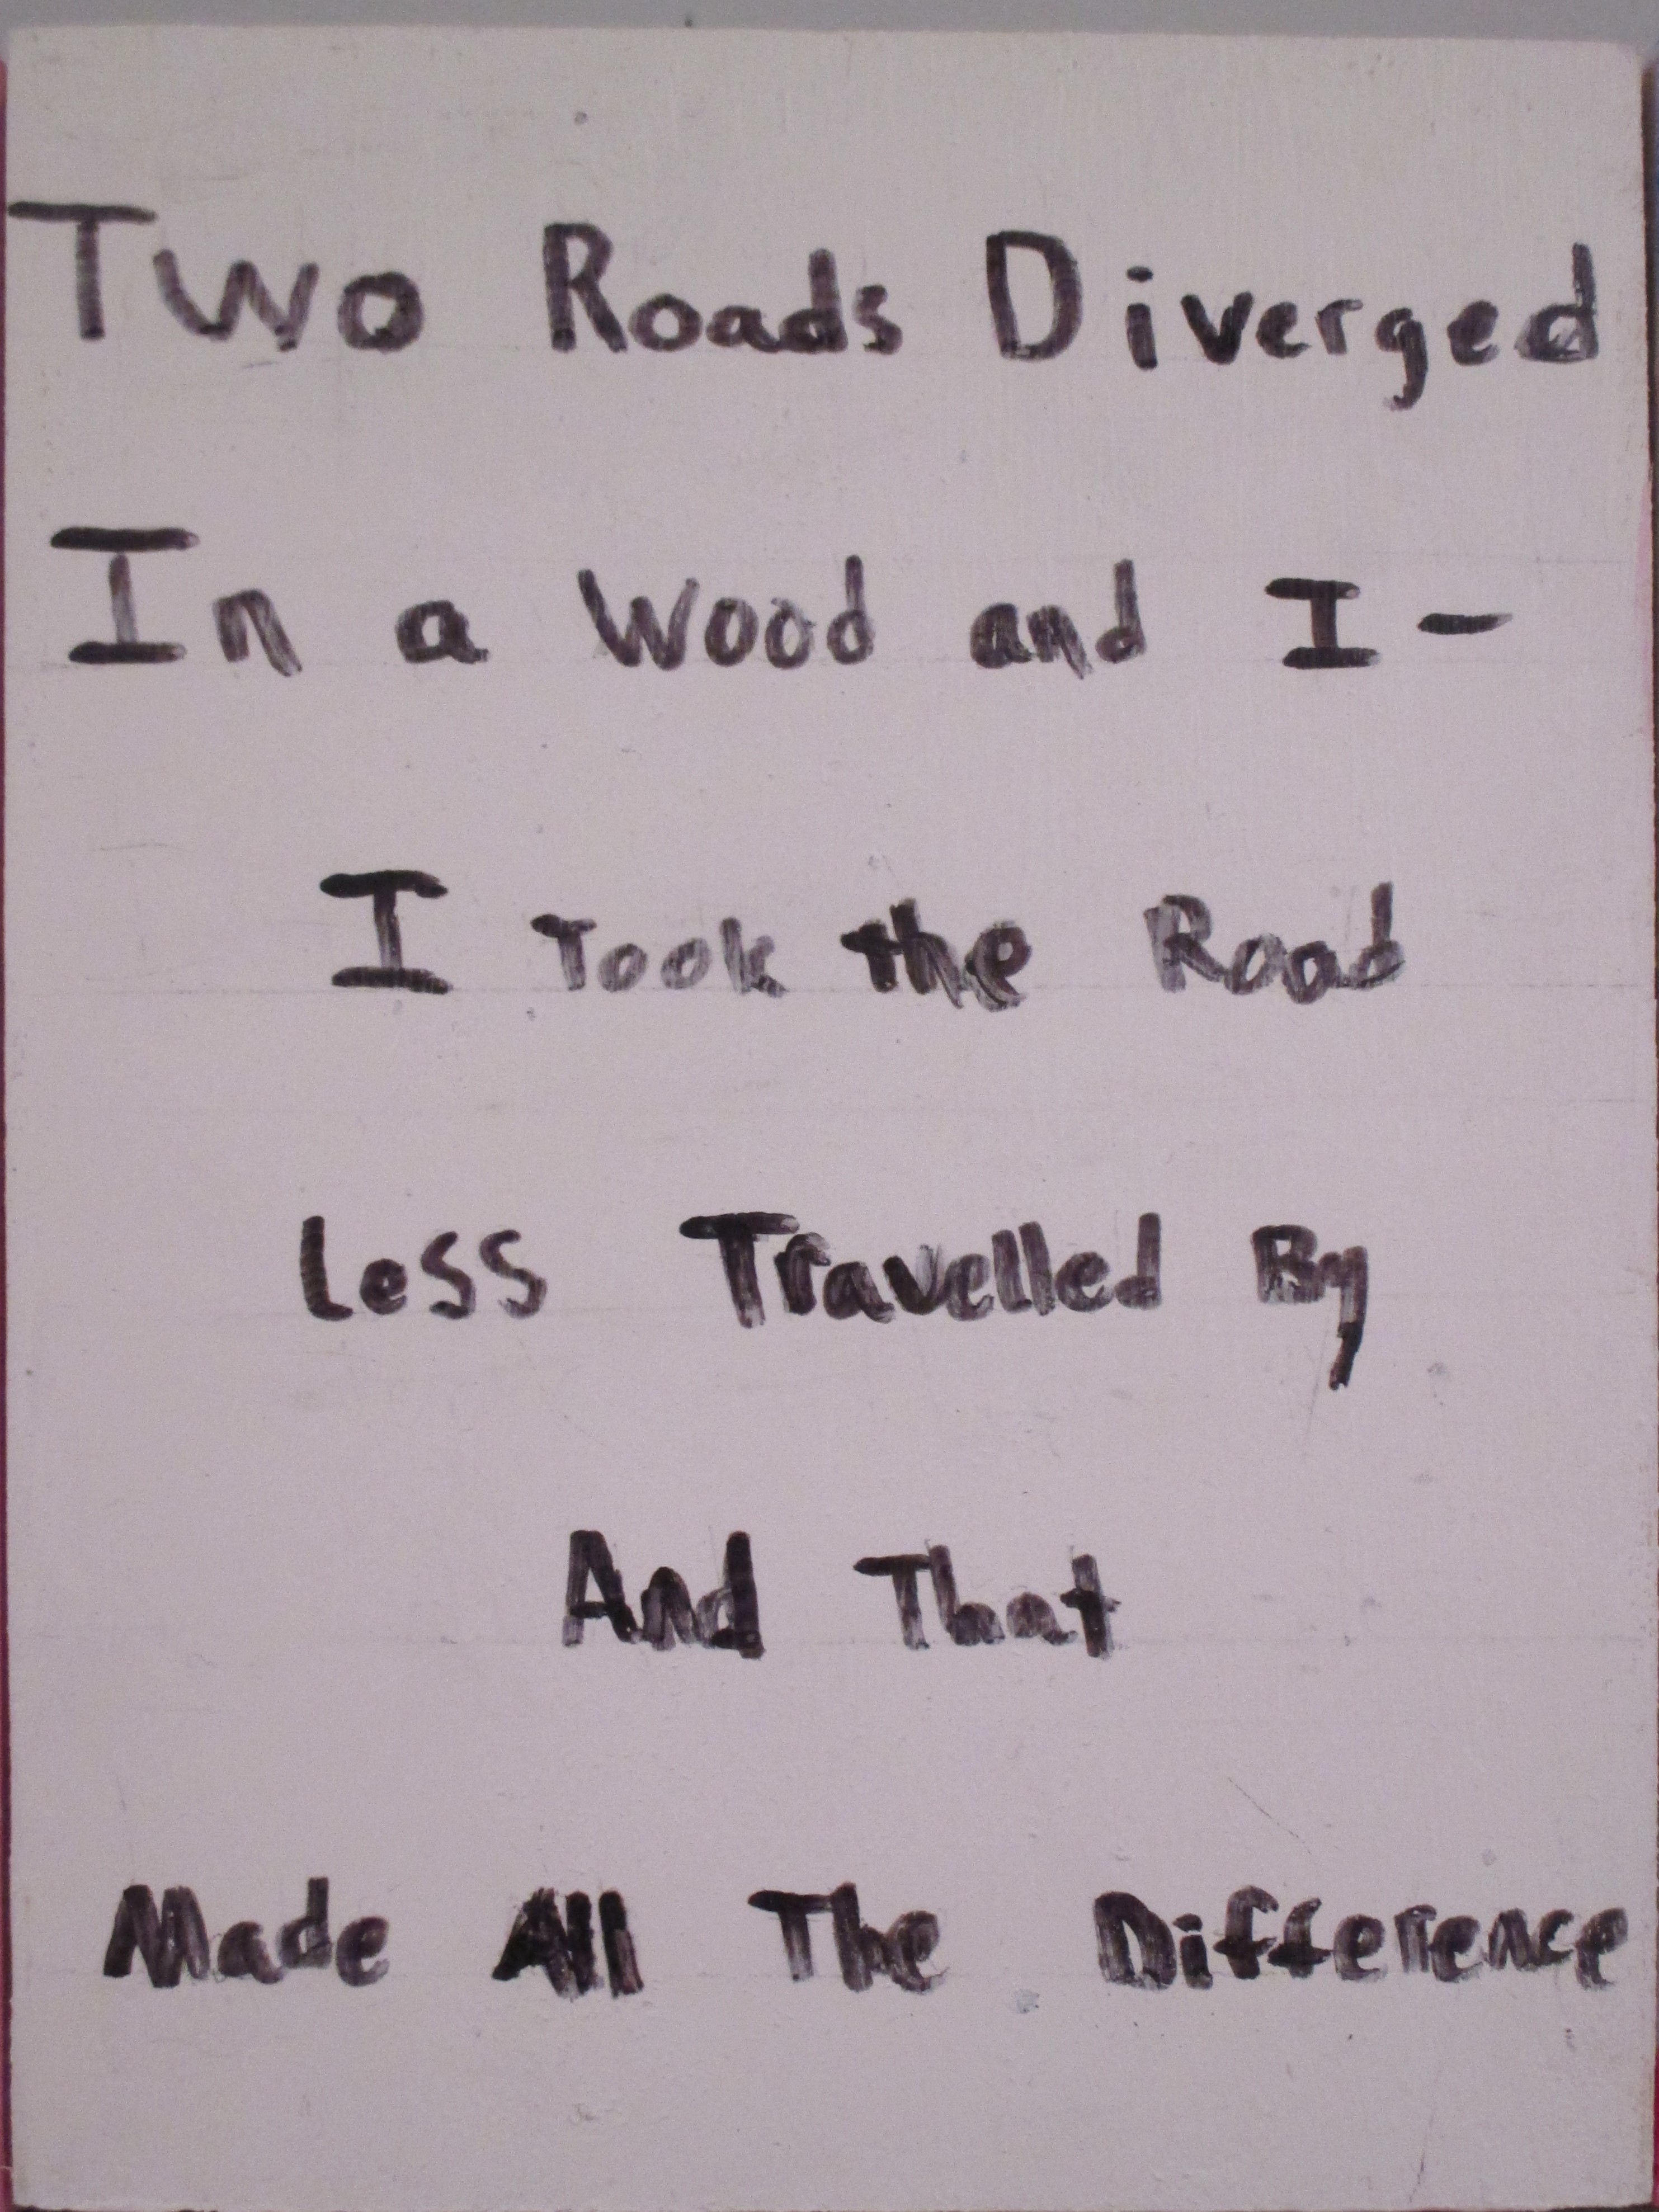 Two Roads Diverged
In a Wood and I-
I Took the Road
Less Travelled By
And That
Made All The Difference